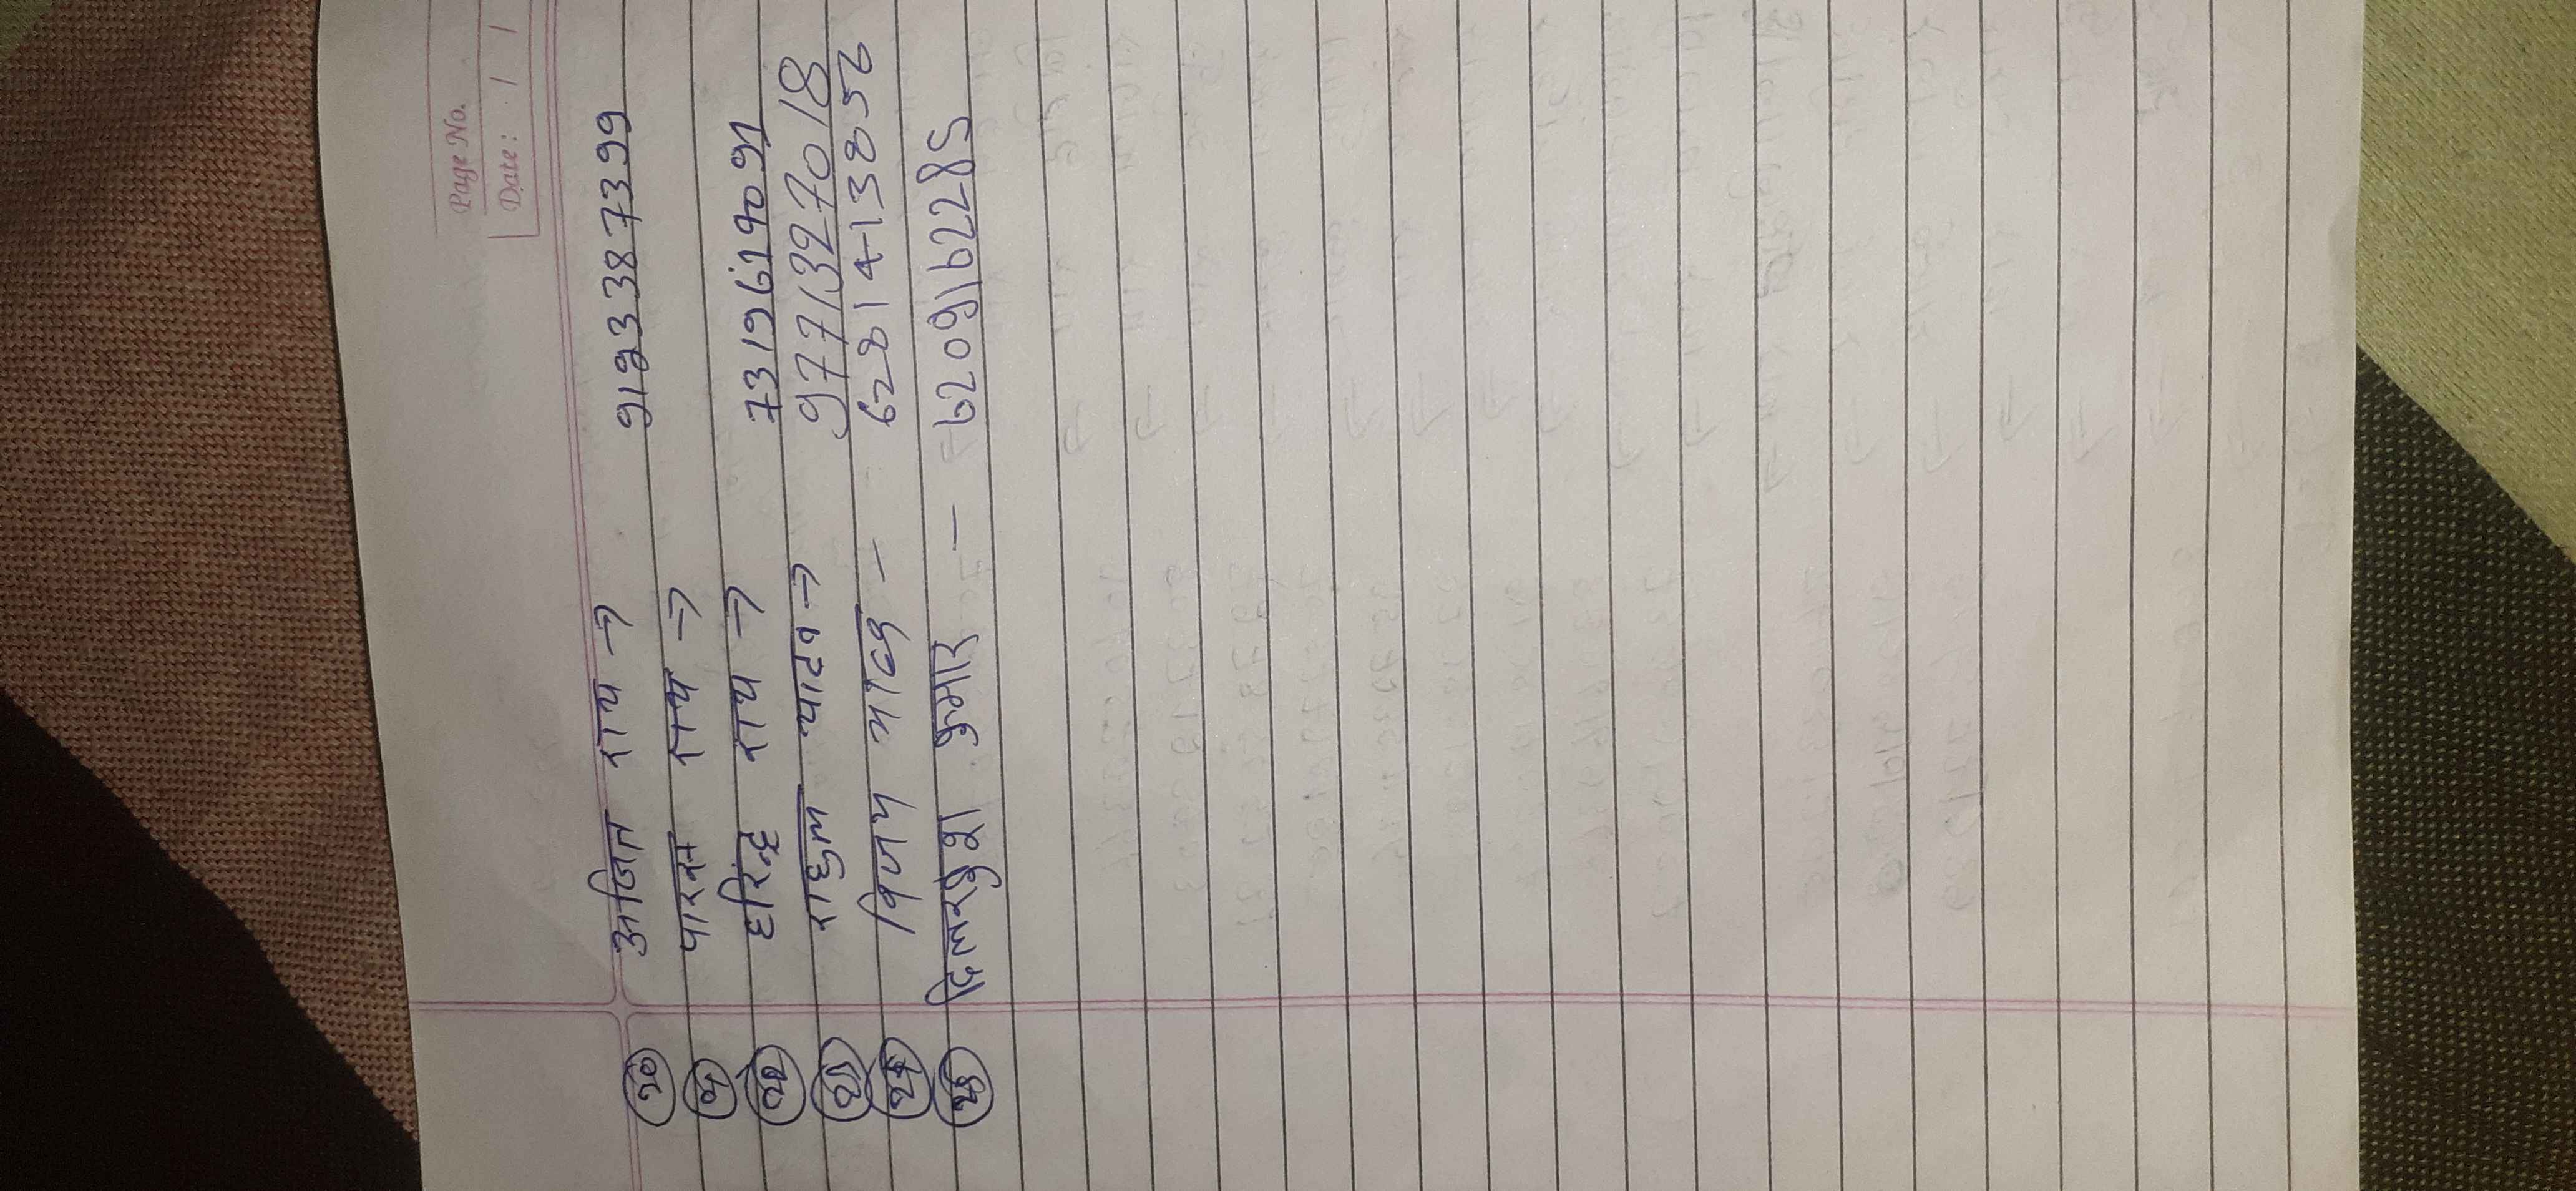 Page No.
Date: / /
20 अजित राय → 9123387399
21 पारस राय →
22 हरिन्द्र राय → 7319619091
23 राहुल यादव → 9771327018
24 विजय यादव – 6281413856
25 दिलखुश कुमार – 6209162285